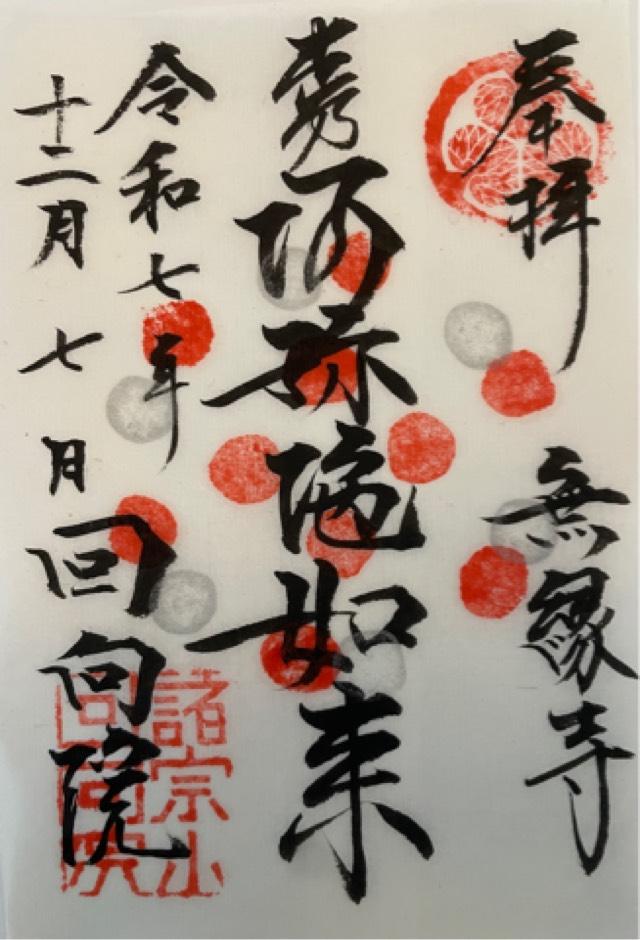 奉拝
無縁寺
阿弥陀如来
令和七年
十二月七日
回向院
諸宗山
回向院